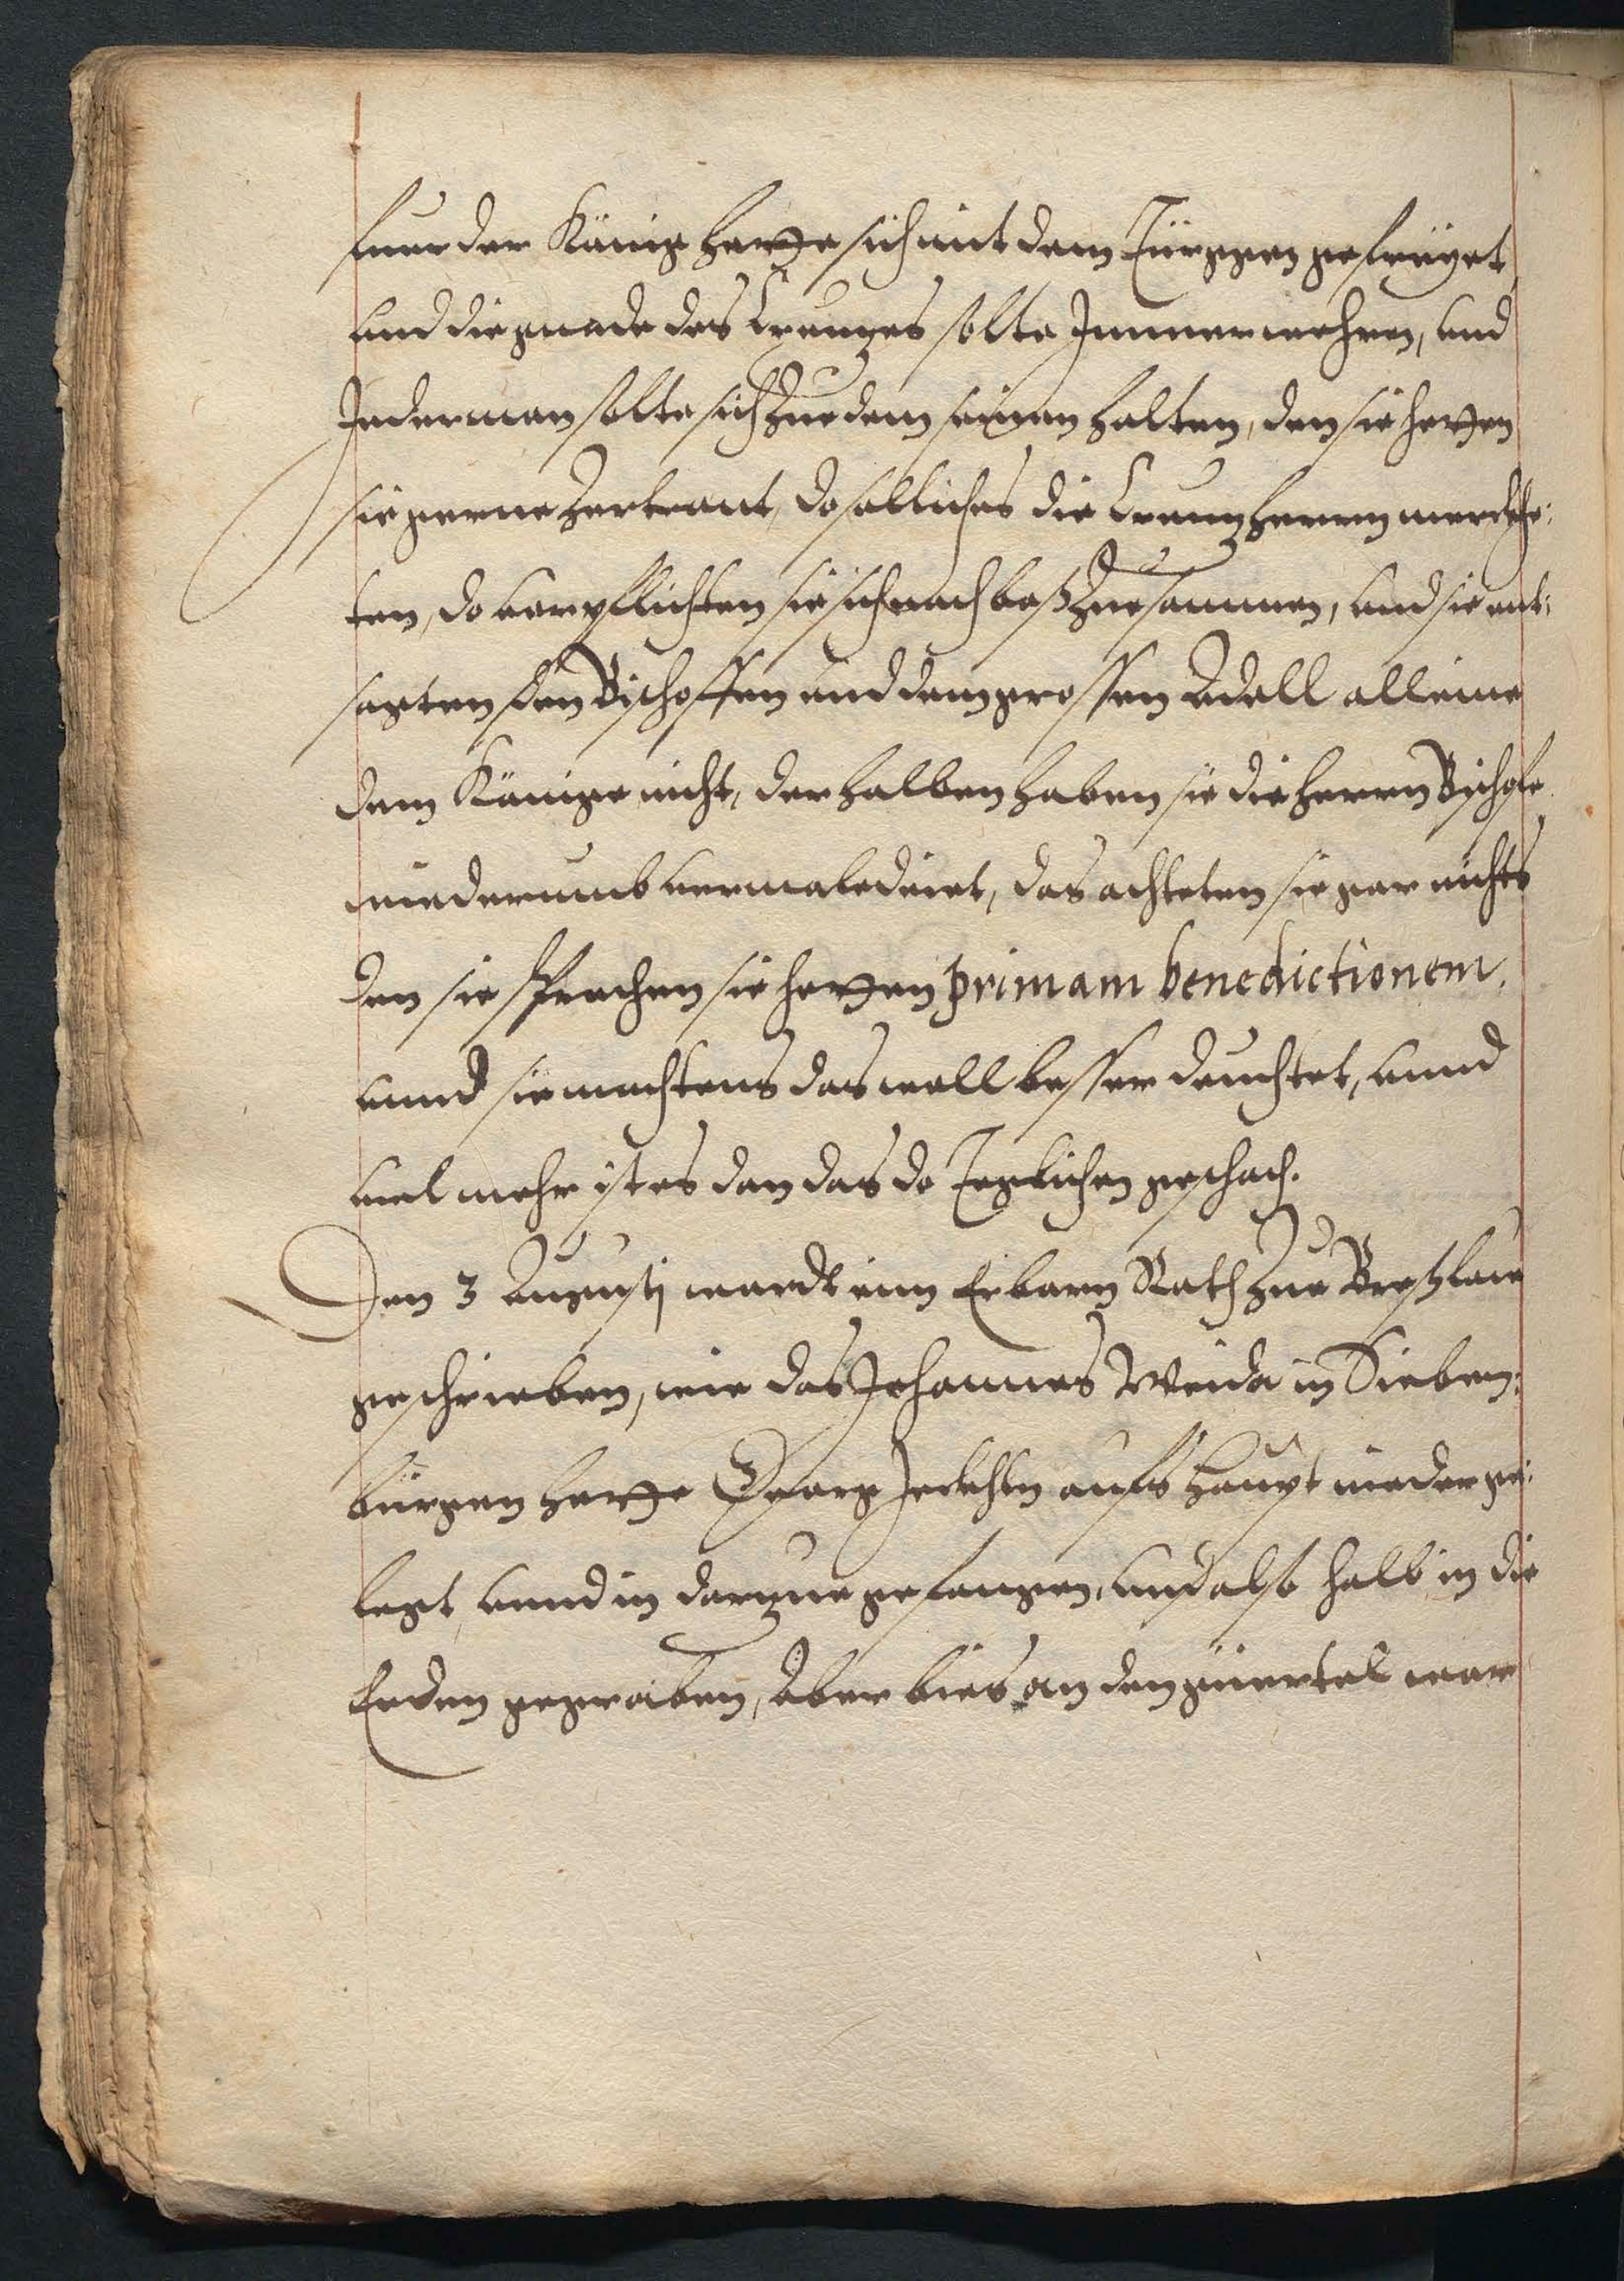 fuer der König hette sich mit dem Türggen gefreyet
und die gnade des Creuzes solte Immer wehren, und
Jederman solte sich zue dem seinen halten, den sie hetten
sie gerne zertrant, do solliches die Creuzherrn merckhe:
ten, do verpflichten sie sich nach baß zuesammen, und sie ent:
sagten den Bischoffen und dem grossen Adell alleine
dem Könige nicht, derhalben haben sie die herrn Bischofe
wiederumb vermaledeiet, das achteten sie gar nichts
den sie sprachen sie hetten primam benedictionem.
unnd sie machtens das woll besser deuchtet, unnd
viel mehr ist es dan das do Teglichen geschach.
Den 3 Augusti wardt einn Erbarn Rath zue Breßlaw
geschrieben, wie das Johannes Weida in Sieben:
bürgen hette Georg Zeckhln aufs haupt nieder ge:
legt, unnd in darzue gefangen, und also halb in die
Erden gegraben, Aber bies an den güertel war